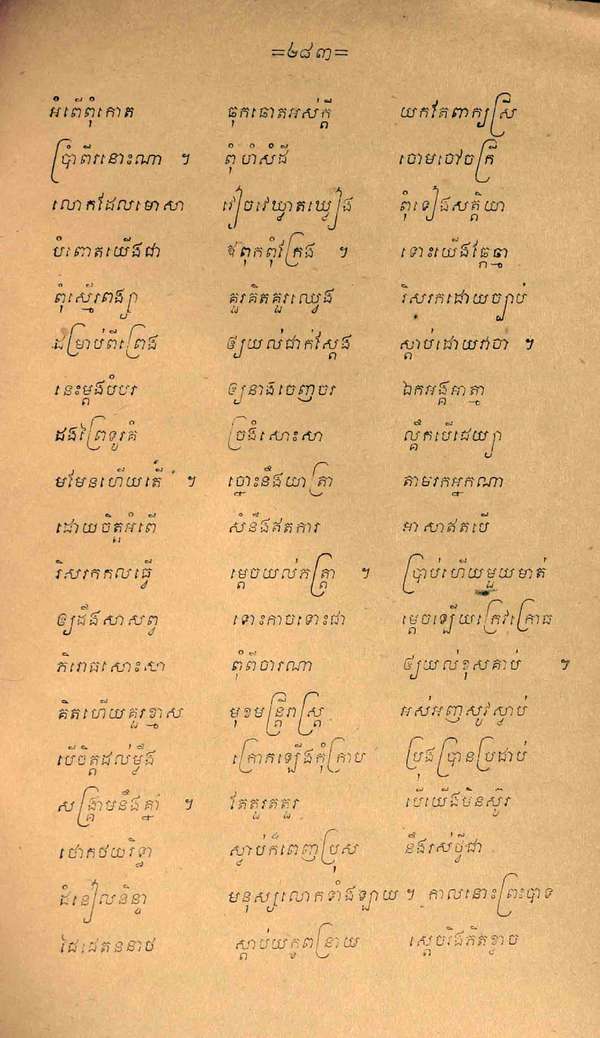 =២៨៣=
អំពើពុំកោត ធុកធោតអស់ក្ដី យកតែពាក្យស្រី
ប្រាំពីរនោះណា ។ ពុំហំសំដី ចោមចៅចក្រី
លោកដែលមោសា វៀចវេឃ្វាតឃ្វៀង ពុំទៀងសត្តិយា
បំពោតយើងជា ឪពុកពុំក្រែង ។ ទោះយើងឆ្កែឆ្មា
ពុំស្មើរពង្សា គួរគិតគួរល្វេង រិសរកដោយច្បាប់
ដម្រាប់ពីព្រេង ឲ្យយល់ជាក់ស្ដែង ស្ដាប់ដោយវាចា ។
នេះម្ដងបំបរ ឲ្យនាងចេញចរ ឯកអង្គអាត្មា
ដងព្រៃទួរគំ ច្រងំសោះសា ល្គឹកបើជេយ្យា
មមែនហើយតើ ។ ច្នោះនឹងយាត្រា តាមរកអ្នកណា
ដោយចិត្តអំពើ សំនឹងឥតការ អាសាឥតបើ
រិសរកកលធ្វើ ម្ដេចយល់ភត្រ្តា ។ ប្រាប់ហើយមួយមាត់
ឲ្យដឹងសាសព្វ ទោះកាចទោះជា ម្ដេចឡើយក្រេវក្រោធ
ភិរោធសោះសា ពុំពីចារណា ឲ្យយល់ខុសគាប់ ។
គិតហើយគួរខ្មាស មុខមន្ត្រីរាស្ត្រ អស់អញសូវស្លាប់
បើចិត្តដល់ម្ល៉ឹង ក្រោកឡើងកុំក្រាប ប្រុងប្រានប្រដាប់
សង្គ្រាមនឹងគ្នា ។ តែតួរតតួរ បើយើងមិនសួរ
ថោកថយរិទ្ធា ស្លាប់ក៏ពេញប្រុស នឹងរស់ថ្វីជា
ដំនៀលនិន្ទា មនុស្សលោកទាំងឡាយ ។ កាលនោះព្រះបាទ
ដៃដេតននាថ ស្ដាប់យកូពន្រាយ ស្ដេចរិងភិតខ្លាច